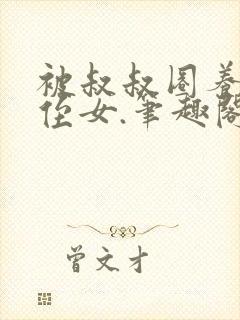 被叔叔圈养
侄女.笔趣阁
曾文才